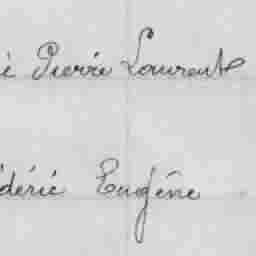 é Pierre Laurent
déric Eugène